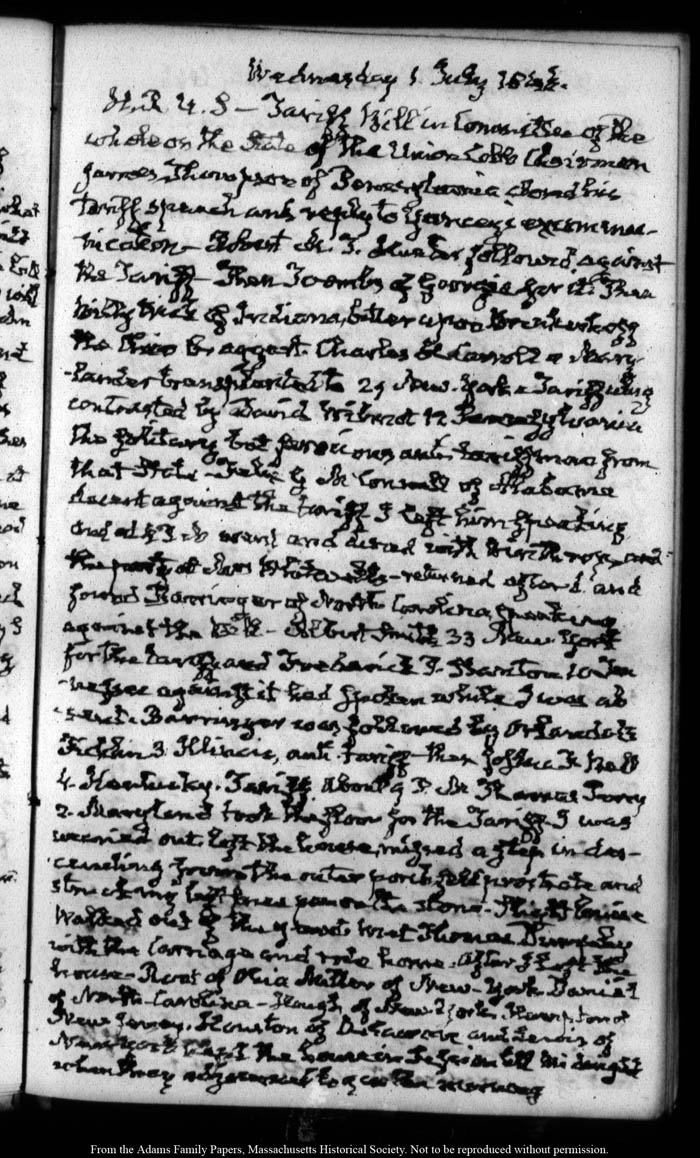 Wednesday 1 July 1846.
H.R. U.S — Tariff Bill in Committee of the
whole on the State of the Union Cobb Chairman
James Thompson of Pennsylvania closed his
tariff speech and reply to
Robert M. T. Hunter followed against
the Tariff — Then Toombs of Georgia for it. Then
of Indiana, bitter upon
Charles H. Carroll a Mary-
lander transplanted to 29 New-York a Tariff
contrasted by David Wilmot 12 Pennsylvania
the solitary but ferocious anti tariff man from
that State — Felix G McConnell of Alabama
against the tariff I left him speaking
and at and dined with
returned after and
found Barringer of North Carolina speaking
against the Bill — Albert Smith 33 New York
for the tariff and Frederick P. Stanton 10 Ten
nessee against it had spoken while I was ab
sent. Barringer was followed by Orlando B
Ficklin 3. Illinois, anti-tariff then Joshua F. Bell
4. Kentucky. Tariff. About 9 P. M Thomas Perry
2. Maryland took the floor for the Tariff. I was
wearied out, left the house, missed a step in des-
cending from the outer porch fell prostrate and
left knee pan on the stone. Slight bruise
Walked out of the yard. Met
with the carriage and rode home. After I left the
house — Root of Ohio Miller of New-York Daniel
of North-Carolina — Hough of New-York. Hampton of
New Jersey. Houston of Delaware and of
New York kept the house in Session till midnight
when they adjourned to morning
From the Adams Family Papers, Massachusetts Historical Society. Not to be reproduced without permission.